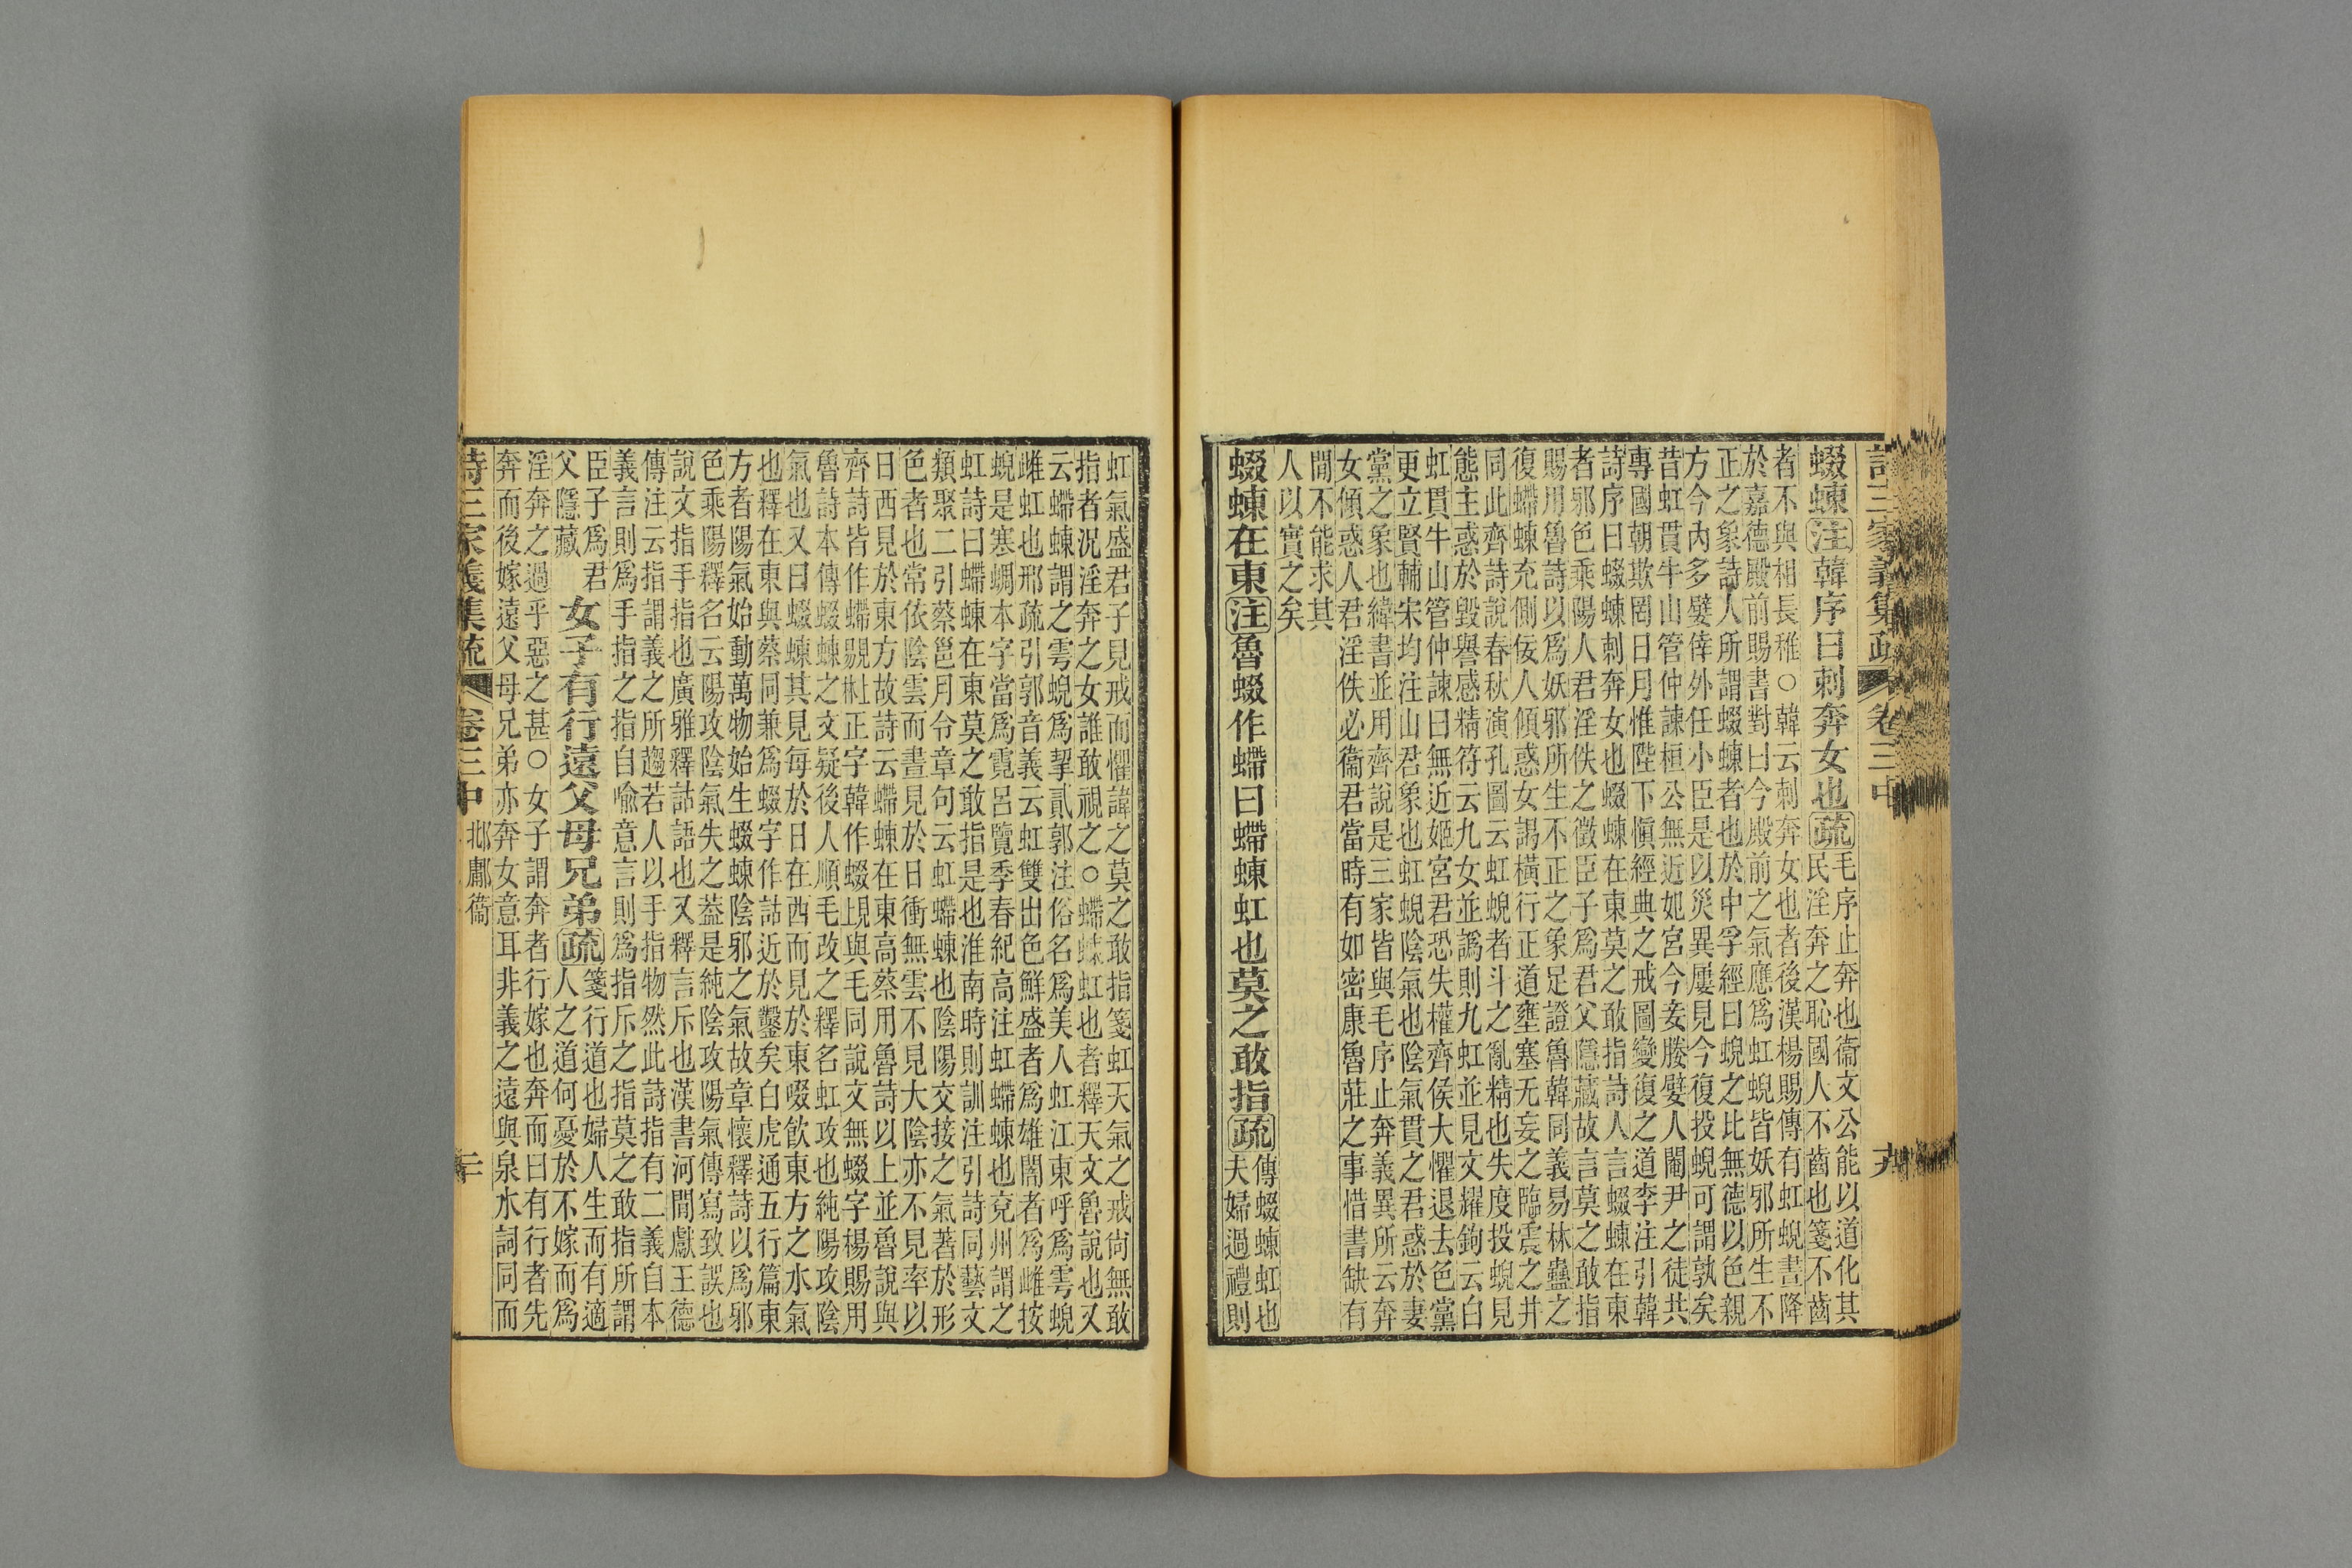 詩三家義集疏 卷三中 十九
蝃蝀注韓序曰刺奔女也疏毛序止奔也衞文公能以道化其
民淫奔之恥國人不齒也箋不齒
者不與相長稚○韓云刺奔女也者後漢楊賜傳有虹蜺晝降
於嘉德殿前賜書對曰今殿前之氣應爲虹蜺皆妖邪所生不
正之象詩人所謂蝃蝀者也於中孚經曰蜺之比無德以色親
方今內多嬖倖外任小臣是以災異屢見今復投蜺可謂孰矣
昔虹貫牛山管仲諫桓公無近妃宮今妾媵嬖人閹尹之徒共
專國朝欺罔日月惟陛下愼經典之戒圖變復之道李注引韓
詩序曰蝃蝀刺奔女也蝃蝀在東莫之敢指詩人言蝃蝀在東
者邪色乘陽人君淫佚之徵臣子爲君父隱藏故言莫之敢指
賜用魯詩以爲妖邪所生不正之象足證魯韓同義易林蠱之
復䗖蝀充側佞人傾惑女謁橫行正道壅塞无妄之臨震之井
同此齊詩說春秋演孔圖云虹蜺者斗之亂精也失度投蜺見
態主惑於毀譽感精符云九女並譌則九虹並見文耀鉤云白
虹貫牛山管仲諫曰無近姬宮君恐失權齊侯大懼退去色黨
更立賢輔宋均注山君象也虹蜺陰氣也陰氣貫之君惑於妻
黨之象也緯書並用齊說是三家皆與毛序止奔義異所云奔
女傾惑人君淫佚必衞君當時有如密康魯莊之事惜書缺有
閒不能求其
人以實之矣
蝃蝀在東注魯蝃作䗖曰䗖蝀虹也莫之敢指疏傳蝃蝀虹也
夫婦過禮則
虹氣盛君子見戒而懼諱之莫之敢指箋虹天氣之戒尙無敢
指者況淫奔之女誰敢視之○䗖蝀虹也者釋天文魯說也又
云䗖蝀謂之雩蜺爲挈貳郭注俗名爲美人虹江東呼爲雩蜺
雌虹也邢疏引郭音義云虹雙出色鮮盛者爲雄闇者爲雌按
蜺是寒蜩本字當爲霓呂覽季春紀高注虹䗖蝀也兗州謂之
虹詩曰䗖蝀在東莫之敢指是也淮南時則訓注引詩同藝文
類聚二引蔡邕月令章句云虹䗖蝀也陰陽交接之氣著於形
色者也常依陰雲而晝見於日衝無雲不見大陰亦不見率以
日西見於東方故詩云䗖蝀在東高蔡用魯詩以上並魯說與
齊詩皆作䗖正字韓作蝃與毛同說文無蝃字楊賜用
魯詩本傳蝃蝀之文疑後人順毛改之釋名虹攻也純陽攻陰
氣也又曰蝃蝀其見每於日在西而見於東啜飲東方之水氣
也釋在東與蔡同兼爲蝃字作詁近於鑿矣白虎通五行篇東
方者陽氣始動萬物始生蝃蝀陰邪之氣故章懷釋詩以爲邪
色乘陽釋名云陽攻陰氣失之葢是純陰攻陽氣傳寫致誤也
說文指手指也廣雅釋詁語也又釋言斥也漢書河閒獻王德
傳注云指謂義之所趨若人以手指物然此詩指有二義自本
義言則爲手指之指自喩意言則爲指斥之指莫之敢指所謂
臣子爲君
父隱藏
女子有行遠父母兄弟疏箋行道也婦人生而有適
人之道何憂於不嫁而爲
淫奔之過乎惡之甚○女子謂奔者行嫁也奔而曰有行者先
奔而後嫁遠父母兄弟亦奔女意耳非義之遠與泉水詞同而
詩三家義集疏 卷三中 邶鄘衞 二十